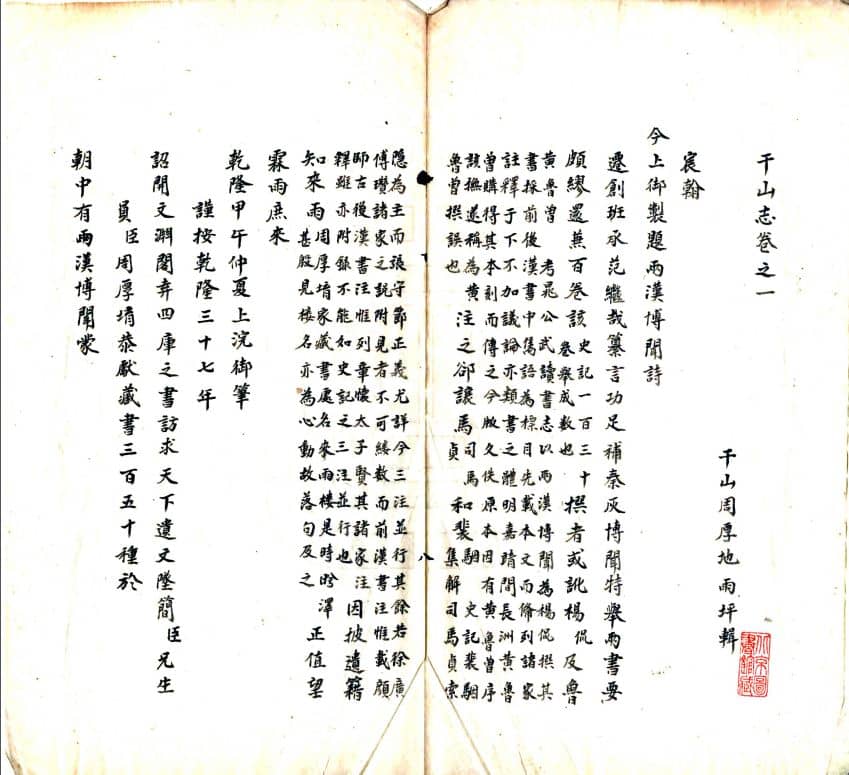 干山志卷之一
干山周厚地雨坪輯
北京圖書館藏
宸翰
今上御製題兩漢博聞詩
遷創班承范繼哉纂言功足補秦灰博聞特舉兩書要
頗繆還蕪百卷該史記一百三十卷舉成數也撰者或訛楊侃及魯
黃魯曾 考晁公武讀書志以兩漢博聞為楊侃撰其
書採前後漢書中雋語為標目先載本文而條列諸家
註釋于下不加議論亦類書之體明嘉靖間長洲黃魯
曾購得其本刻而傳之今版久佚原本因有黃魯曾序
該撫遂稱為黃
魯曾撰誤也
注之卻讓馬貞司馬和裴駰史記裴駰
集解司馬貞索
隱為主而張守節正義尤詳今三注並行其餘若徐廣
傅瓚諸家之說附見者不可縷數而前漢書注惟載顏
師古後漢書注惟列章懷太子賢其諸家注
釋雖亦附錄不能如史記之三注並行也
因披遺籍
知來雨周厚堉家藏書處名來雨樓是時盻澤
甚殷見樓名亦為心動故落句及之
正值望
霖雨庶來
乾隆甲午仲夏上浣御筆
謹按乾隆三十七年
詔開文淵閣弆四庫之書訪求天下遺文墜簡臣兄生
員臣周厚堉恭獻藏書三百五十種於
朝中有兩漢博聞蒙
八